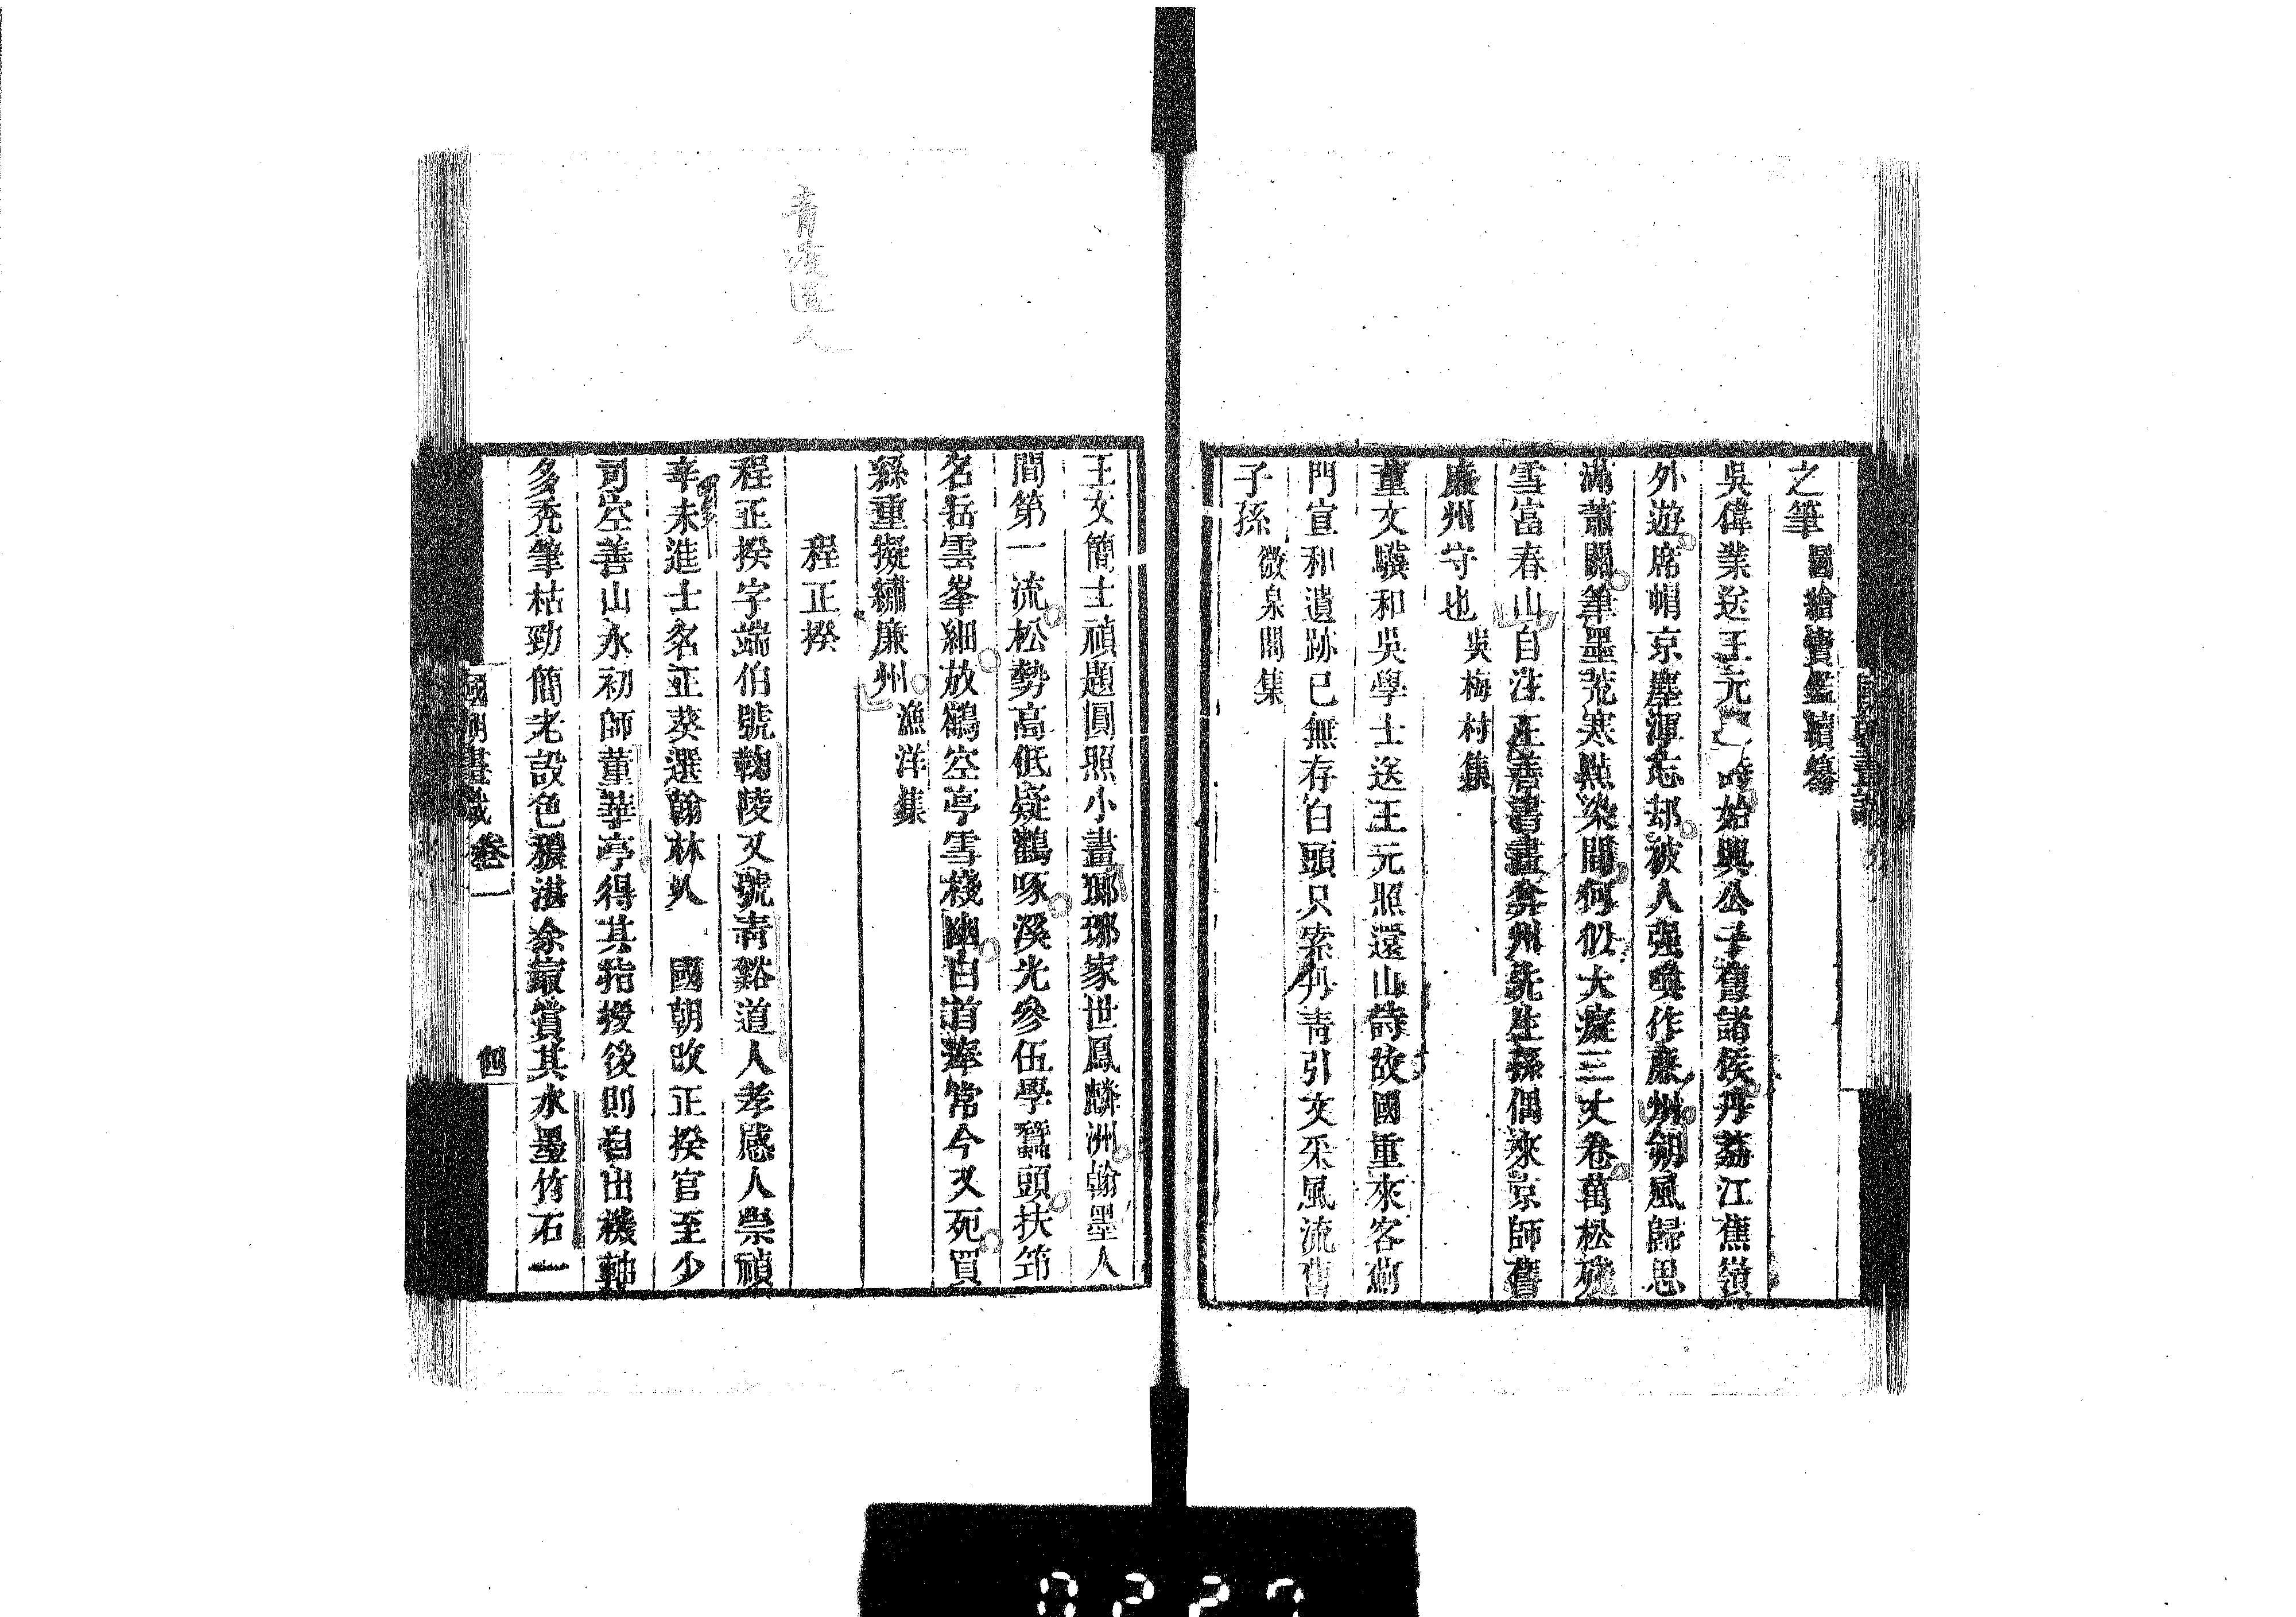 之筆圖繪寶鑑續纂
吳偉業送王元照詩始興公子舊諸侯丹荔江蕉嶺
外遊席帽京塵渾忘却被人强喚作廉州朔風歸思
滿蕭關筆墨荒寒點染間何似大癡三丈卷萬松殘
雪富春山自注王善書畫弇州先生孫偶來京師舊
廉州守也吳梅村集
董文驥和吳學士送王元照還山詩故國重來客薊
門宣和遺跡已無存白頭只索丹青引文采風流舊
子孫微泉閣集
王文簡士禎題圓照小畫瑯琊家世鳳麟洲翰墨人
間第一流松勢高低疑鸛啄溪光參伍學蠶頭扶筇
名岳雲峯細放鶴空亭雪棧幽白首奉常今又死買
絲重擬繡廉州漁洋集
程正揆
程正揆字端伯號鞠陵又號靑谿道人孝感人崇禎
辛未進士名正葵選翰林入 國朝改正揆官至少
司空善山水初師董華亭得其指授後則自出機軸
多禿筆枯勁簡老設色穠湛余最賞其水墨竹石一
國朝畫識 卷一 四
青溪道人
國朝畫識
0227